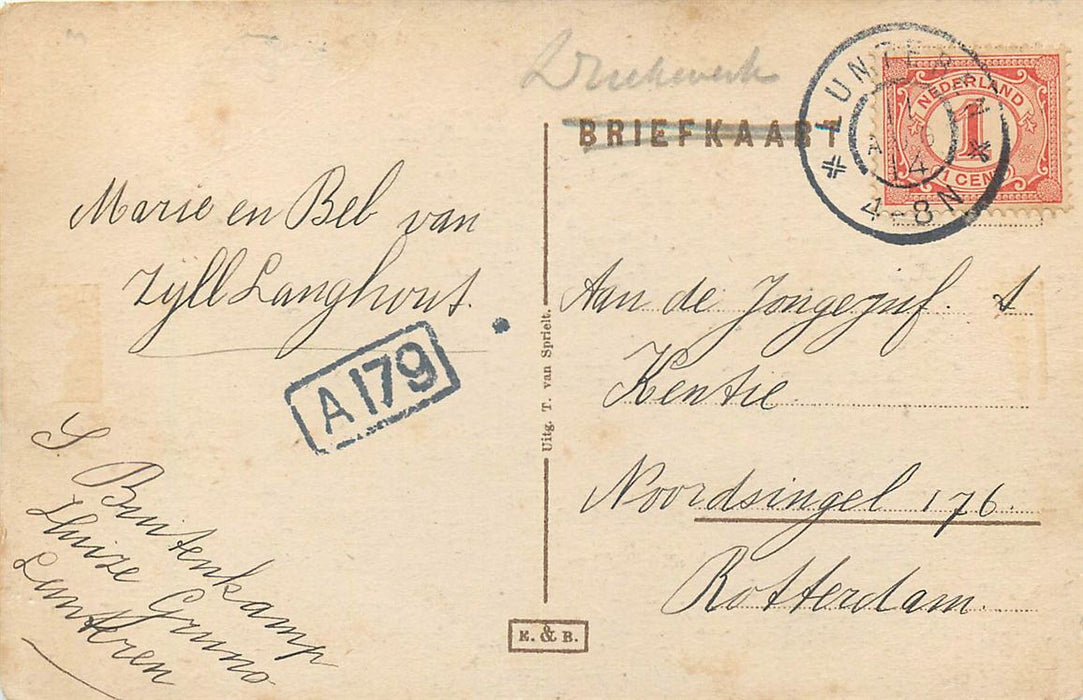 Drukwerk
BRIEFKAART
LUNTEREN
AUG
14
4-8N
NEDERLAND
1
1 CENT
Marie en Bel van
Zyll Langhout.
A179
S. Buitenkamp
Huize Gruno
Lunteren
Uitg. T. van Sprielt.
E. & B.
Aan de Jongejuf.
Kentie
Noordsingel 176.
Rotterdam.